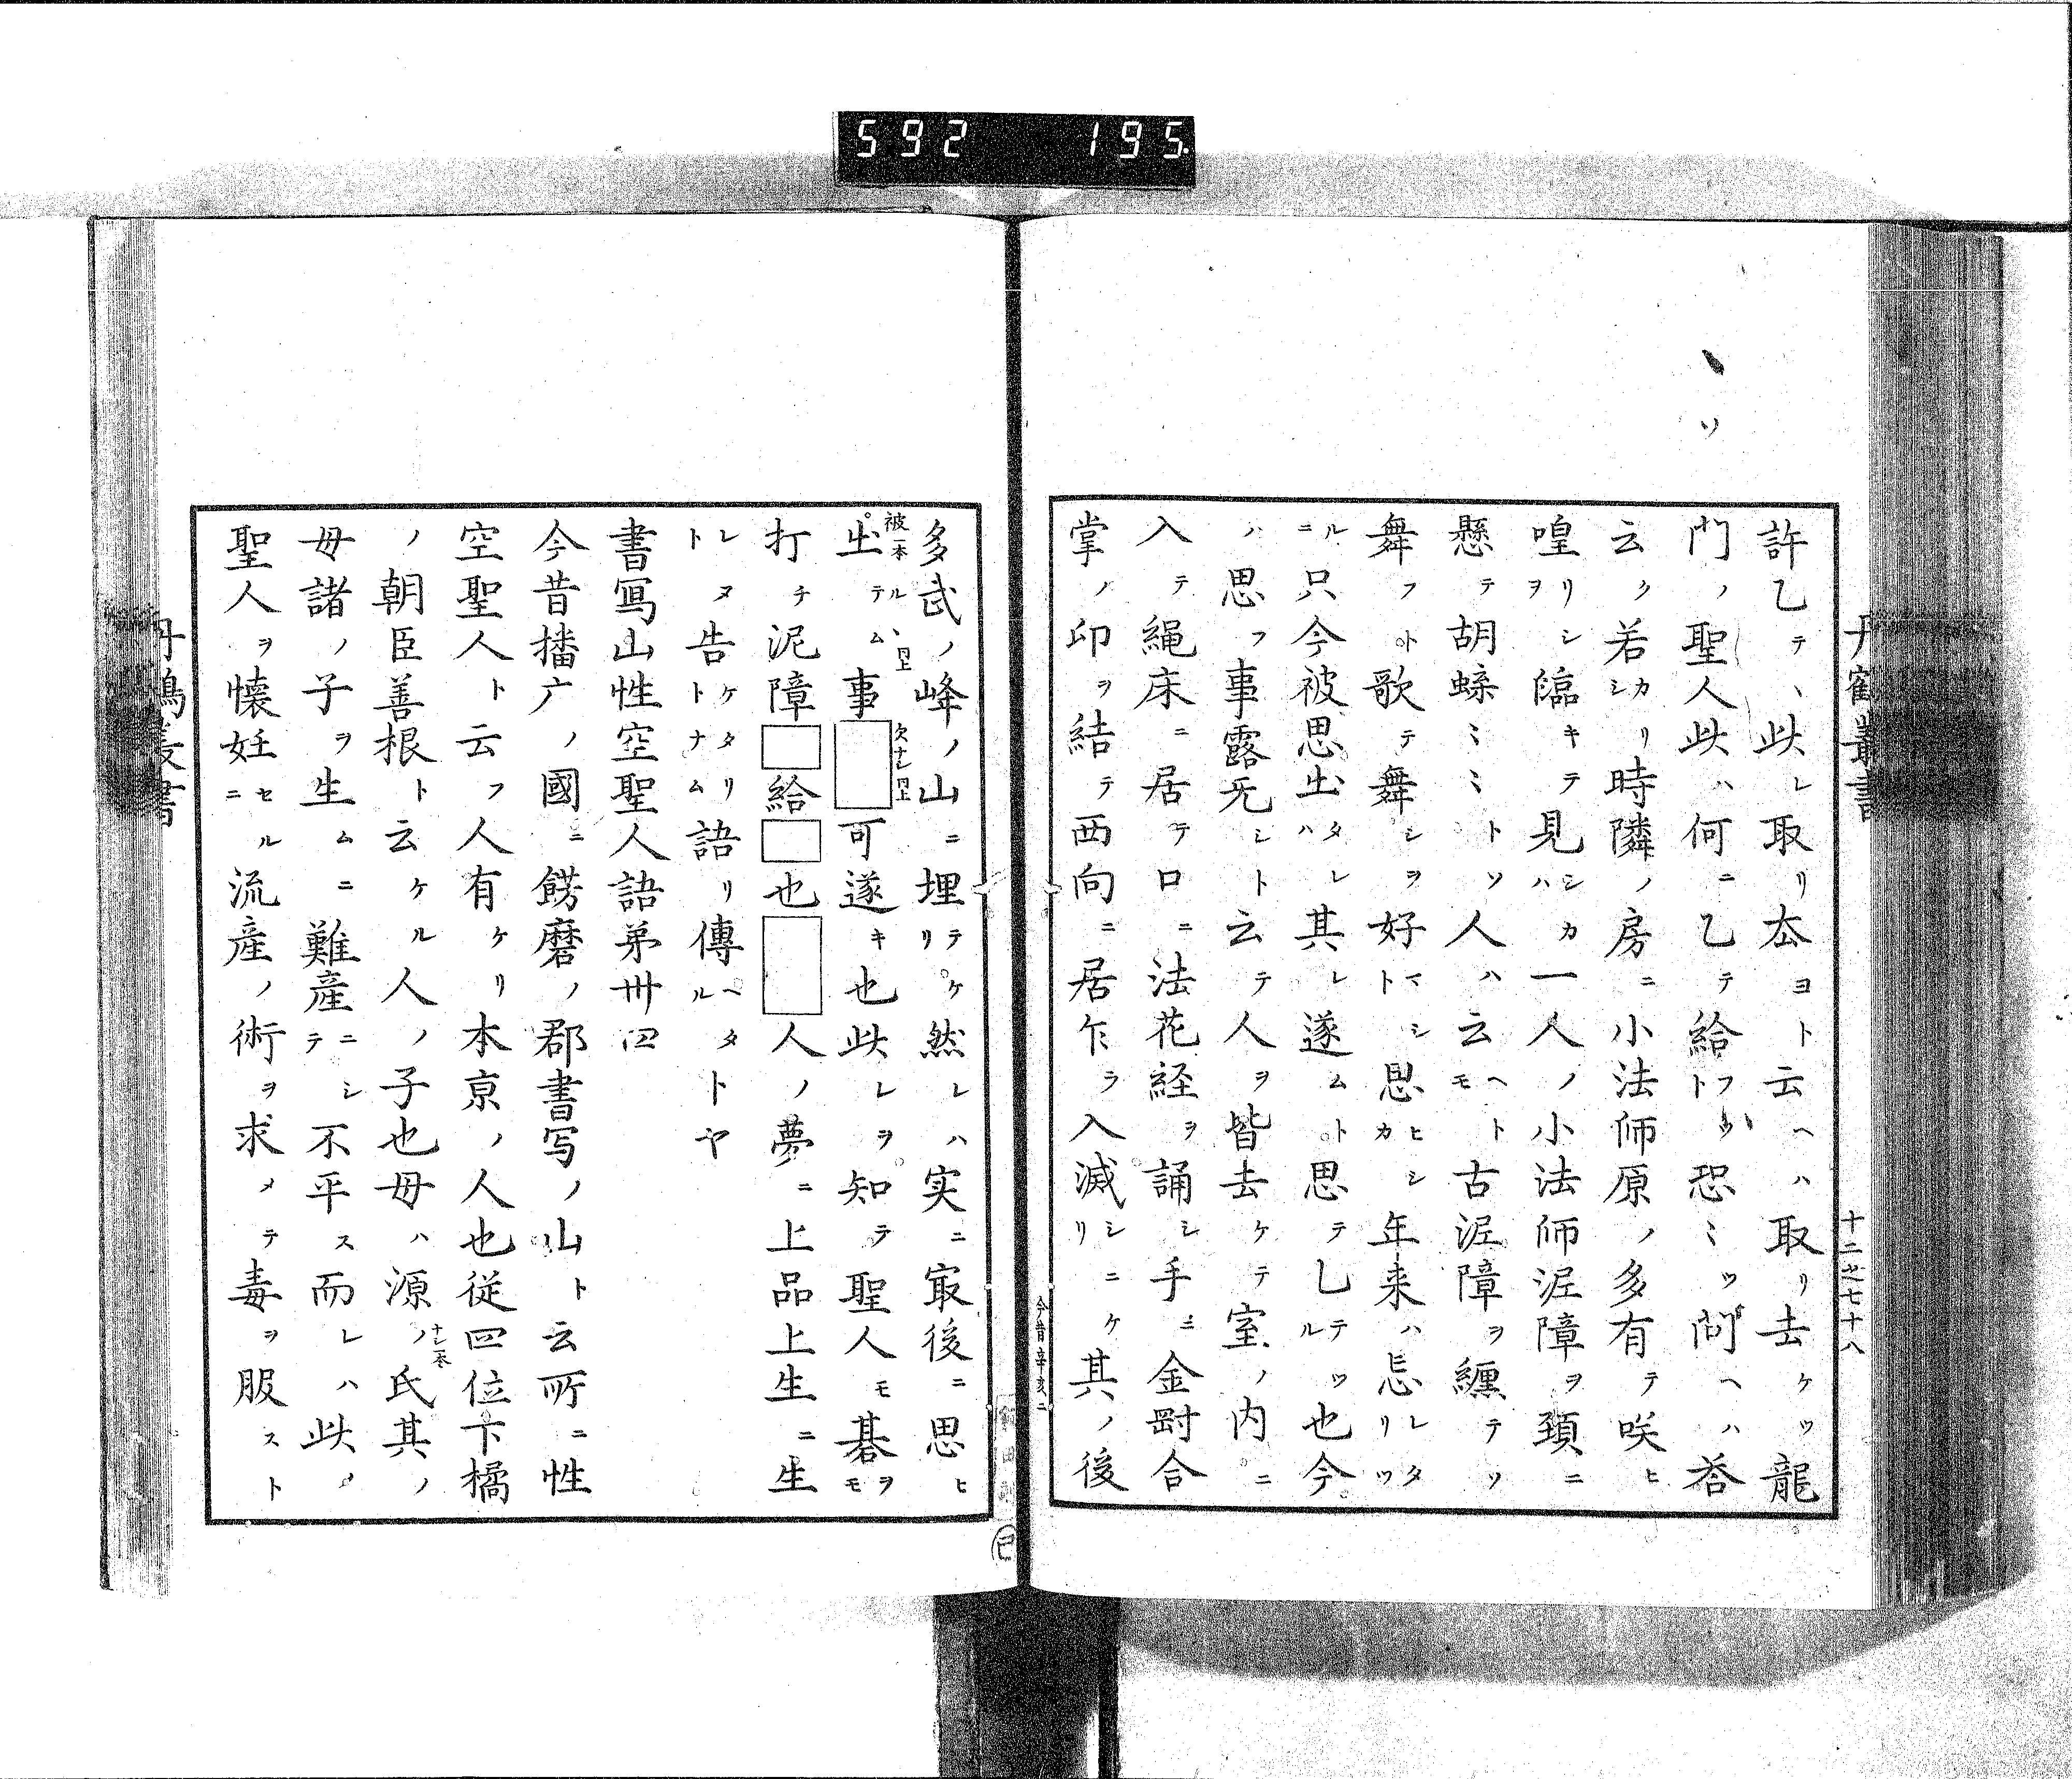 592 195
丹鶴叢書
十二之七十八
許乙テ、此レ取リ去ヨト云ヘハ取リ去ケツ龍
門ノ聖人此ハ何ニ乙テ給フト恐ミミツ問ヘハ荅
云ク若カリシ時隣ノ房ニ小法師原ノ多有テ咲ヒ
喤リシヲ臨キテ見シカハ一人ノ小法師泥障ヲ頚ニ
懸テ胡蝾ミミトソ人ハ云ヘトモ古泥障ヲ纏テソ
舞フト歌テ舞シヲ好マシト思ヒシカ年来ハ忘レタリツ
ルニ只今被思出タレハ其レ遂ムト思テ乙テツル也今
ハ思フ事露无シト云テ人ヲ皆去ケテ室ノ内ニ
入テ繩床ニ居テ口ニ法花経ヲ誦シ手ニ金剛合
掌ノ印ヲ結テ西向ニ居乍ラ入滅シニケリ其ノ後
今昔辛亥ニ
多武ノ峰ノ山ニ埋テケリ然レハ実ニ最後ニ思ヒ
被一本 ル、同上 欠ナシ同上
出テム事□可遂キ也此レヲ知テ聖人モ碁ヲモ
打チ泥障□給□也□人ノ夢ニ上品上生ニ生
レヌト告ケタリトナム語リ傳ヘタルトヤ
書寫山性空聖人語弟卅四
今昔播广ノ國ニ餝磨ノ郡書写ノ山ト云所ニ性
空聖人ト云フ人有ケリ本京ノ人也従四位下橘
ノ朝臣善根ト云ケル人ノ子也母ハ源ノ氏其ノ
ナシ一本
母諸ノ子ヲ生ムニ難産ニシテ不平ス而レハ此ノ
聖人ヲ懐妊セルニ流産ノ術ヲ求メテ毒ヲ服スト
丹鶴叢書